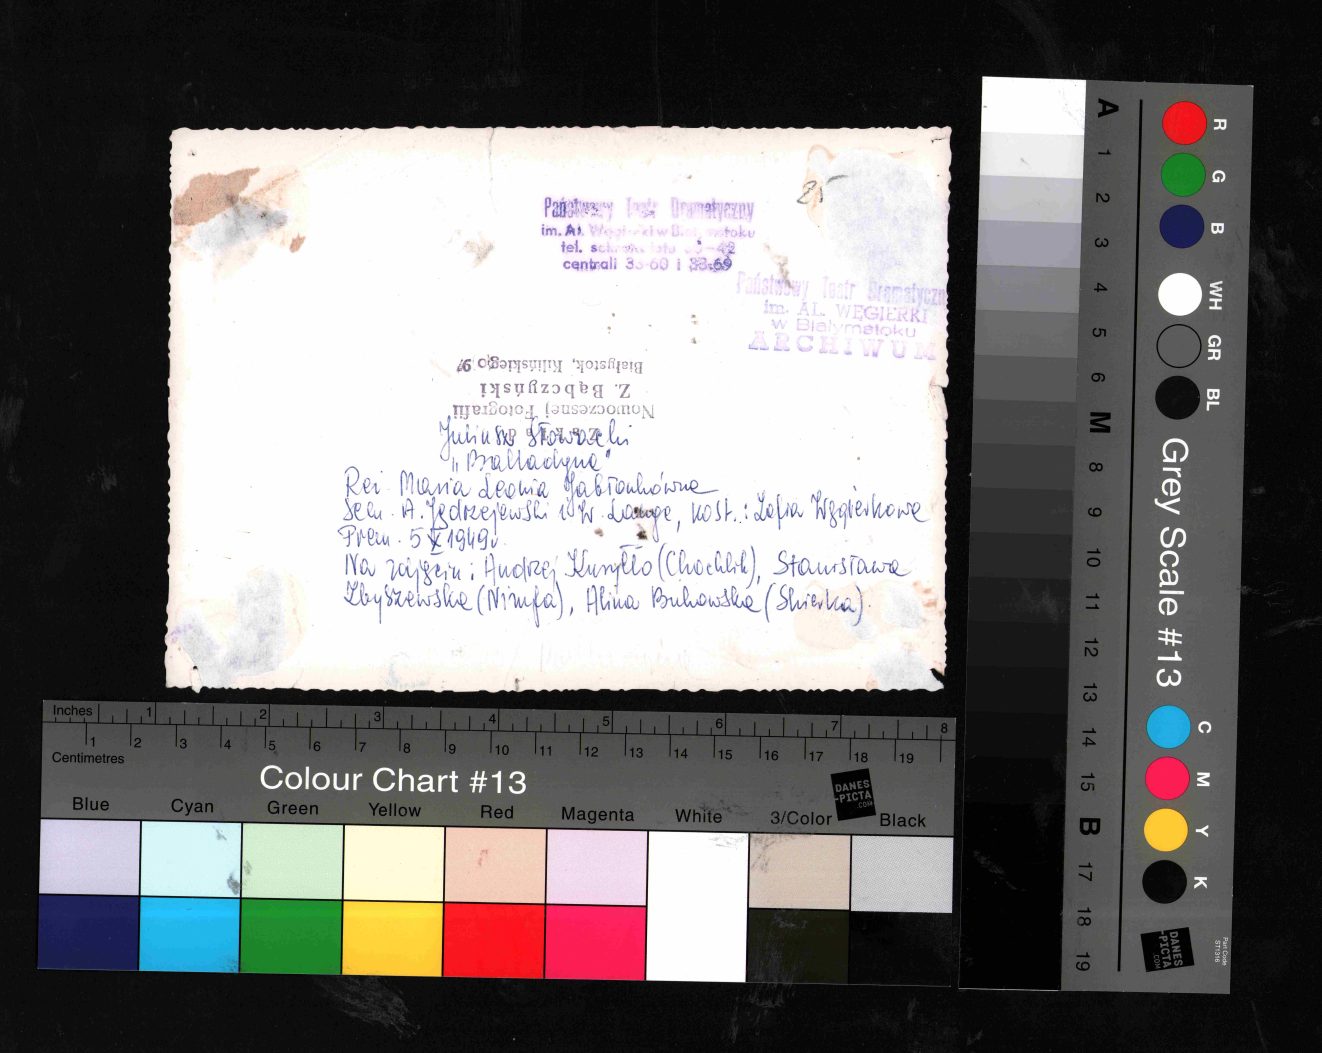 25
Państwowy Teatr Dramatyczny
im. Al. Węgierki w Białymstoku
tel. sekretariatu
centrali 33-60 i 33-69
Państwowy Teatr Dramatyczny
im. AL. WĘGIERKI
w Białymstoku
ARCHIWUM
Nowoczesnej Fotografii
Z. Bąbczyński
Białystok, Kilińskiego
Juliusz Słowacki
„Balladyna"
Reż. Maria Leonia Jabłonkówna
Scen. A. Jędrzejewski i W. Lange, kost.: Zofia Węgierkowa
Prem. 5 X 1949r.
Na zdjęciu: Andrzej Kuryłło (Chochlik), Stanisława
Zbyszewska (Nimfa), Alina Bukowska (Skierka).
Inches 1 2 3 4 5 6 7 8
1 2 3 4 5 6 7 8 9 10 11 12 13 14 15 16 17 18 19
Centimetres
Colour Chart #13
DANES
-PICTA
.COM
Blue Cyan Green Yellow Red Magenta White 3/Color Black
A 1 2 3 4 5 6 M 8 9 10 11 12 13 14 15 B 17 18 19
R G B WH GR BL
Grey Scale #13
C M Y K
DANES
-PICTA
.COM
Part Code
ST1316